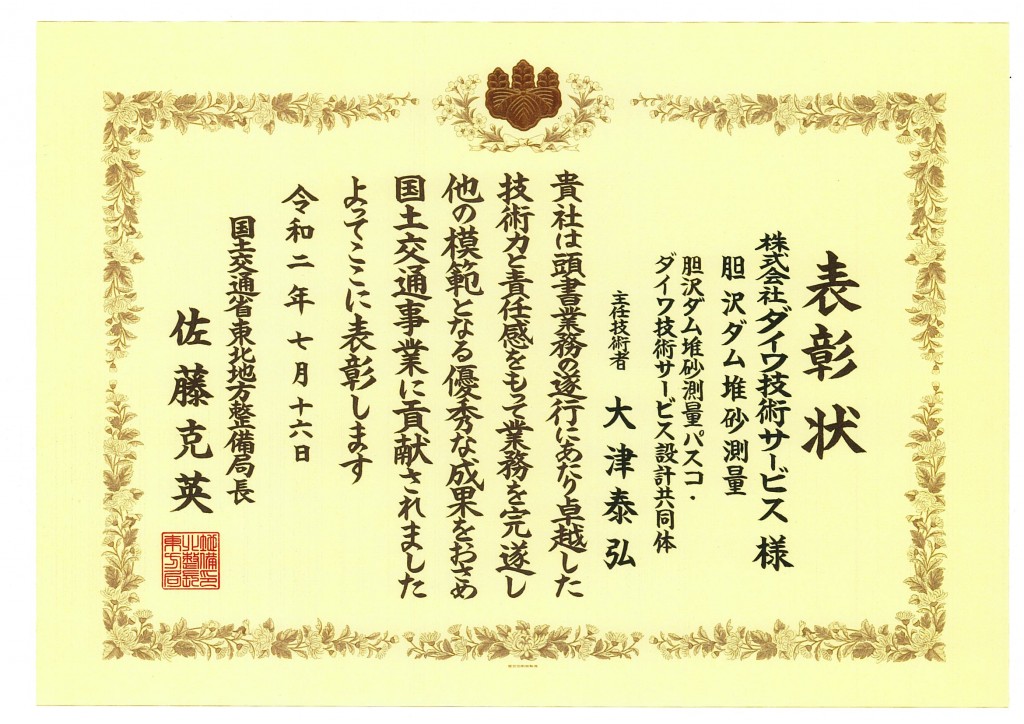 表彰状
株式会社ダイワ技術サービス 様
胆沢ダム堆砂測量
胆沢ダム堆砂測量パスコ・
ダイワ技術サービス設計共同体
主任技術者 大津泰弘
貴社は頭書業務の遂行にあたり卓越した
技術力と責任感をもって業務を完遂し
他の模範となる優秀な成果をおさめ
国土交通事業に貢献されました
よってここに表彰します
令和二年七月十六日
国土交通省東北地方整備局長
佐藤克英